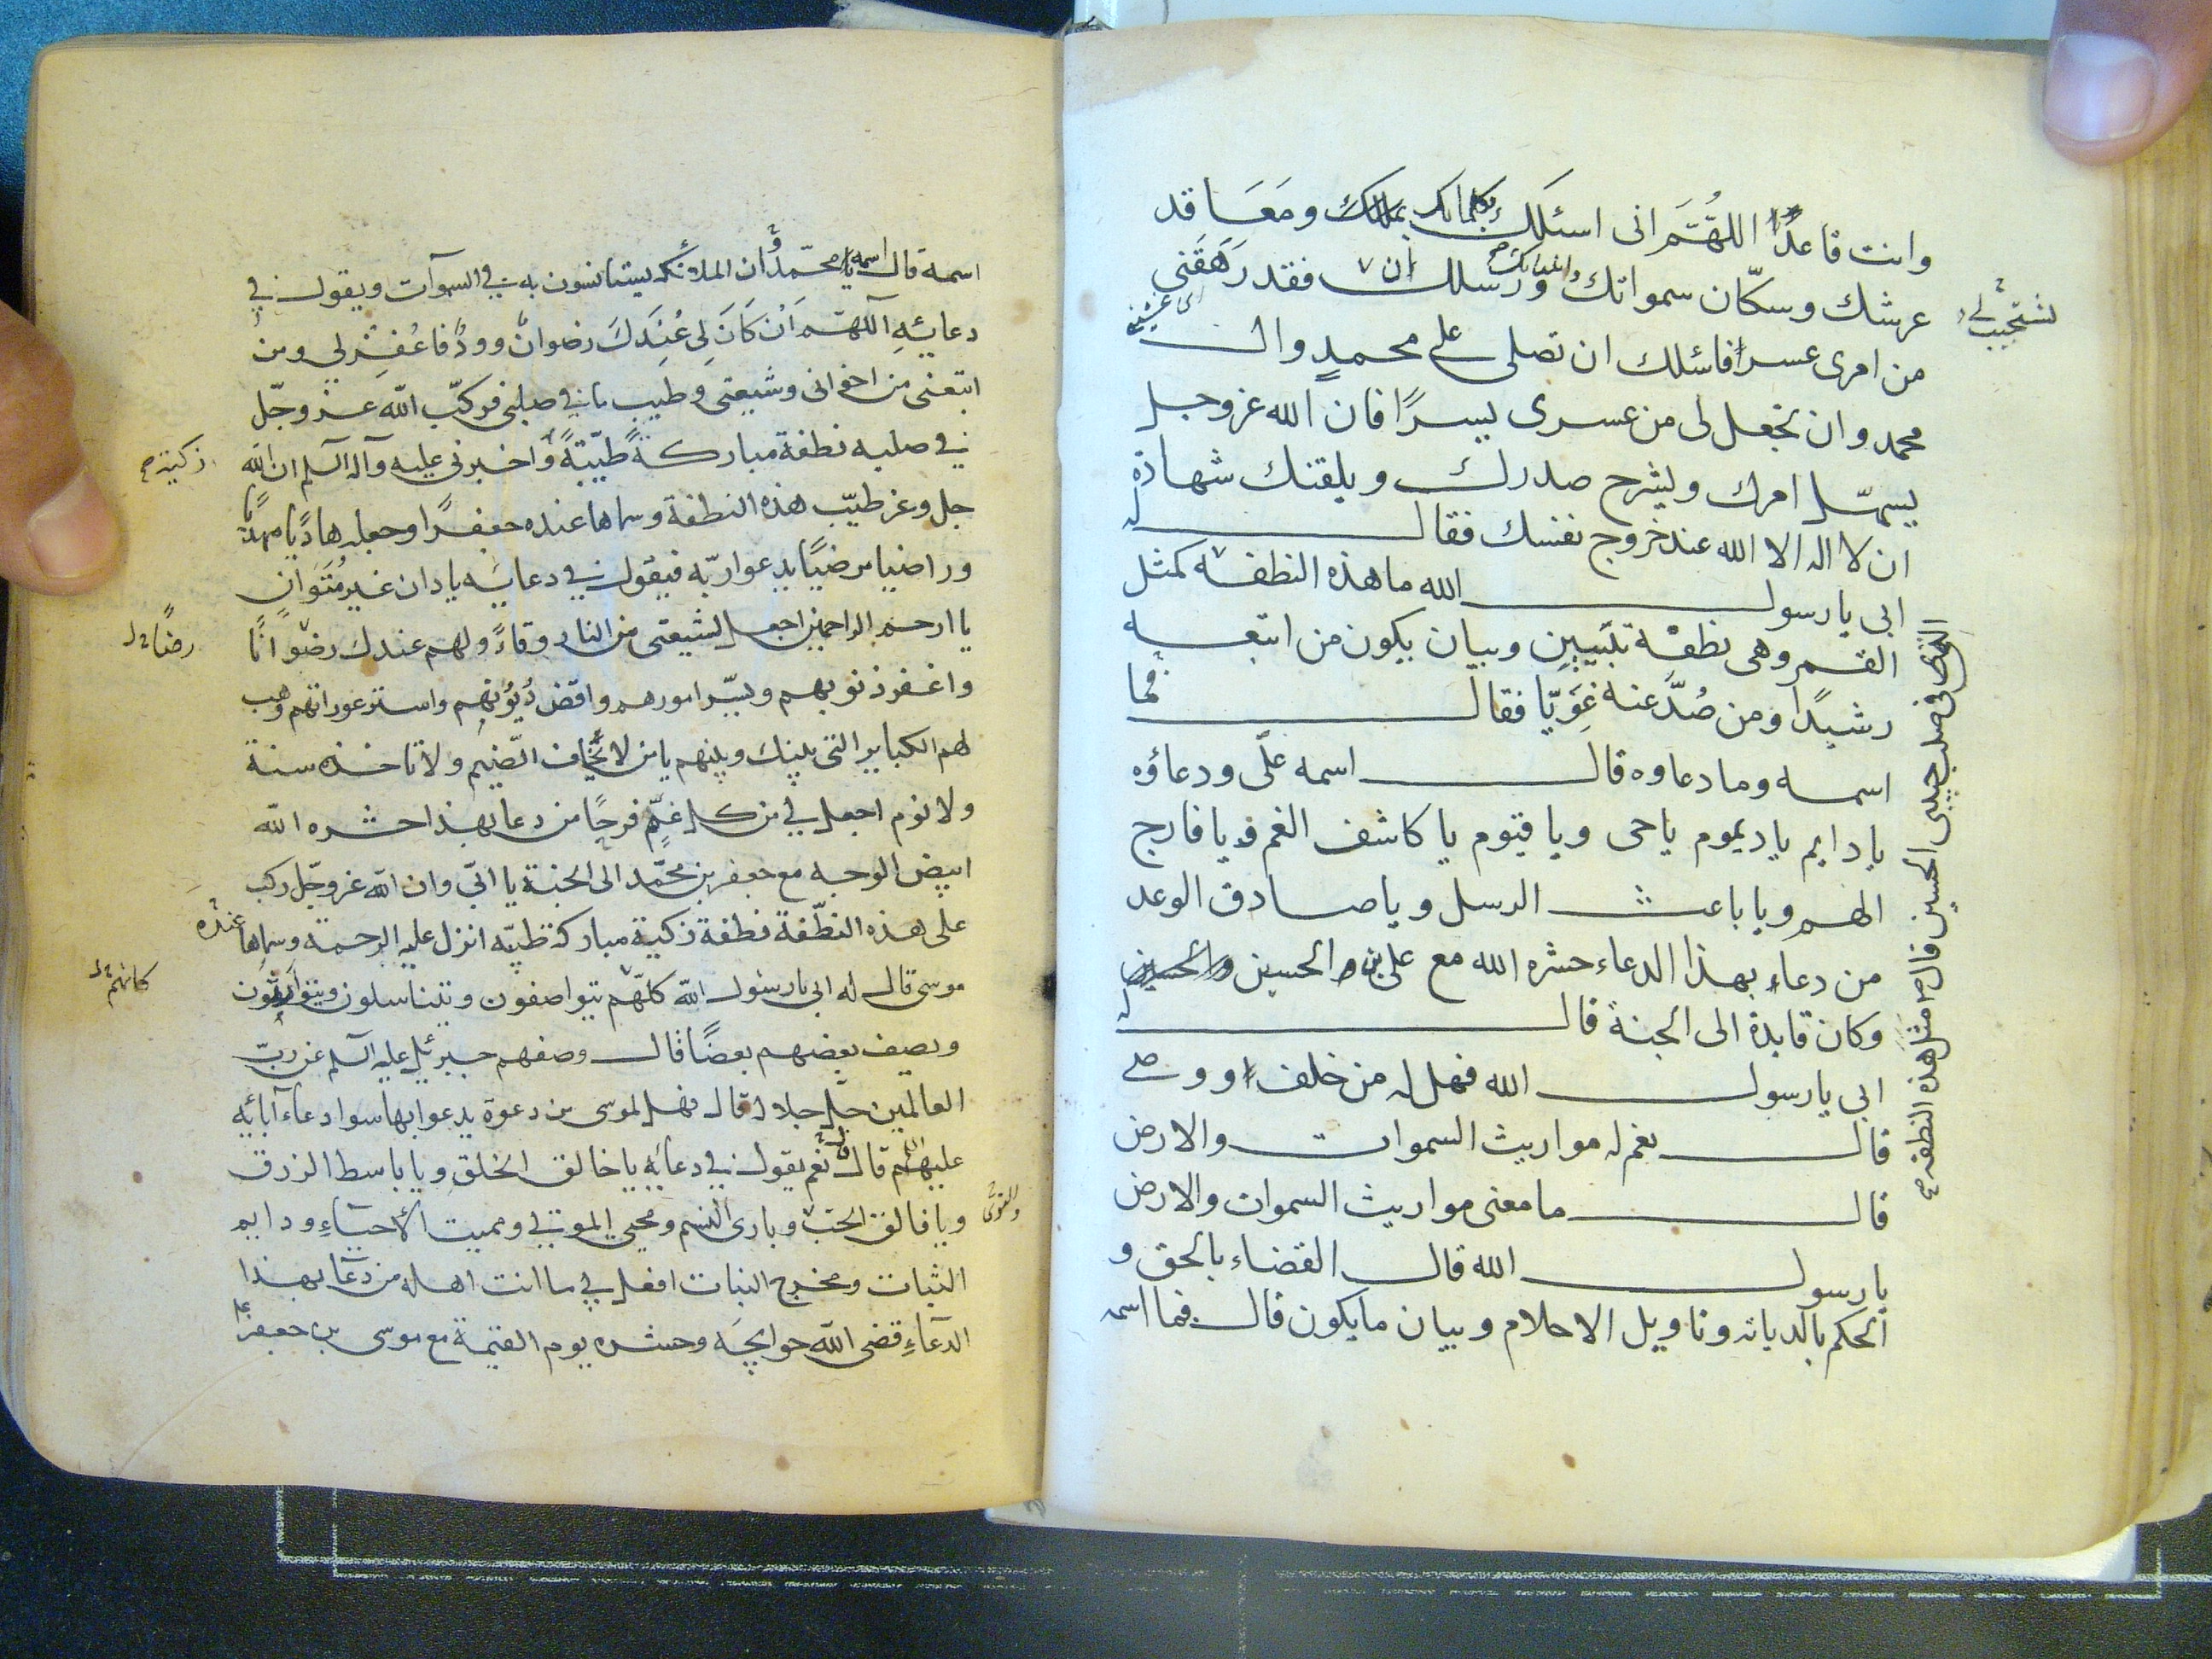 وانت قاعدًا اللهُمَّ انى اسئلك بكلماتك ومَعَاقد
عرشك وسكّان سمواتك وانبيائك ورسلك ان فقد رَهَقَنى
من امرى عسرا فاسئلك ان تصلى على محمدٍ وال
محمد وان تجعل لى من عسرى يسرًا فان الله عز وجل
يسهّل امرك ويشرح صدرك ويلقنك شهادة
ان لا اله الا الله عند خروج نفسك فقال له
ابى يا رسول الله ما هذه النطفة كمثل
القمر وهى نطفة تبيين وبيان يكون من اتبعه
رشيدًا ومن صُدَّ عنه غَوِيّا فقال فما
اسمه وما دعاوه قال اسمه علّى ودعاؤه
يا دايم يا ديموم ياحى ويا قيوم يا كاشف الغم ويا فارج
الهم ويا باعث الرسل ويا صادق الوعد
من دعاء بهذا الدعاء حشره الله مع على بن الحسين
وكان قايدة الى الجنة قال له
ابى يا رسول الله فهل له من خلف ووصى
قال نعم له مواريث السموات والارض
قال ما معنى مواريث السموات والارض
يا رسول الله قال القضاء بالحق و
الحكم بالديانه وتاويل الاحلام وبيان مايكون قال فما اسمه
تستجيب لى
فى صلب حبيبى الحسين قال مثل هذه النطفه
اسمه قال اسمه محمّد وان الملائكه ليستانسون به فى السموآت ويقول فى
دعائِهِ اللهمّ اَنْ كَانَ لى عُندَكَ رضوانٌ وودٌّ فاغفر لى ومن
اتبعنى من اخوانى وشيعتى وطيب ما فى صلبى فركّب الله عز وجلّ
فى صلبه نطفة مباركةً طيّبةً واخبرنى عليه وآله السلم ان الله
جل وعز طيّب هذه النطفة وسماها عنده جعفرًا وجعله هاديًا مهديًا
وراضيا مرضيًا يدعوا ربّه فيقول فى دعايه يا دان غير مُتَوانٍ
يا ارحم الراحمين اجعل لشيعتى من النار وقاءً ولهم عندك رضوانًا
واغفر ذنوبهم ويسّر امورهم واقض دُيُونهم واستر عوراتهم وهب
لهم الكباير التى بينك وبينهم يا من لا يخاف الضيم ولا تاخذه سنة
ولا نوم اجعل لى من كل غمٍّ فرجًا من دعا بهذا حشره الله
ابيض الوجه مع جعفر بن محمّد الى الجنة يا ابىّ وان الله عز وجّل ركب
على هذه النطّفة نطفة زكية مباركة طيبّه انزل عليه الرحمة وسماها عنده
موسى قال له ابى يا رسُول الله كلهّم يتواصفون ويتناسلون ويتوارثون
ويصف بعضهم بعضًا قال وصفهم جبرئيل عليه السلم عن ربّ
العالمين جلّ جلاله قال فهل لموسى من دعوة يدعوا بها سوا دعاء آبائه
عليهم السلم قال نعم يقول فى دعائه يا خالق الخلق ويا باسط الرزق
ويا فالق الحبّ وبارى النسم ومحيى الموتى ومميت الأحياءِ ودايم
الثبات ومخرج النبات افعل بى ما انت اهله من دعا بهذا
الدّعاءِ قضى الله حوايجَه وحشره يوم القيمة مع موسى بن جعفر
زكية
رضًا
كانهم
والنوى